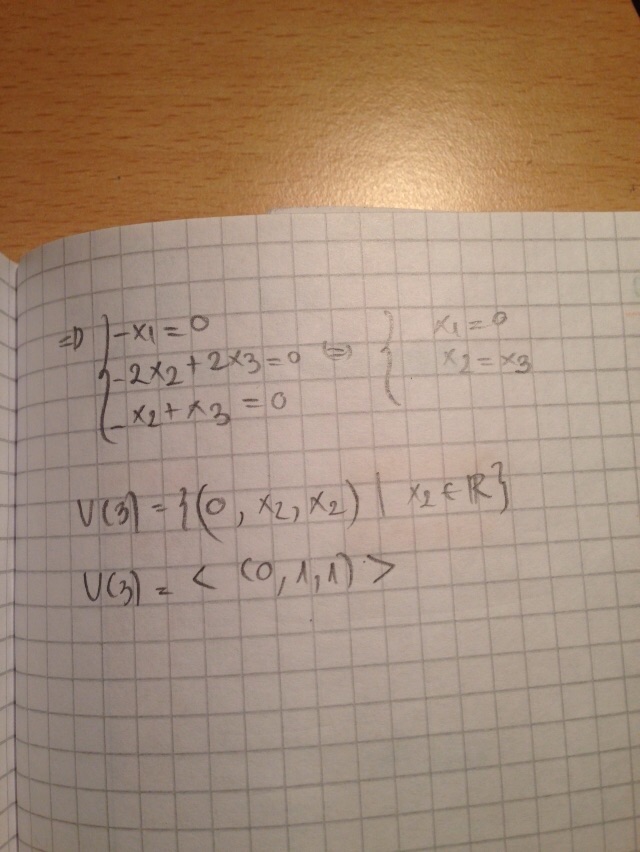 ⇒ { -x1 = 0
-2x2 + 2x3 = 0 ⇔ { x1 = 0
-x2 + x3 = 0 x2 = x3
V(3) = {(0, x2, x2) | x2 ∈ ℝ}
V(3) = < (0, 1, 1) >